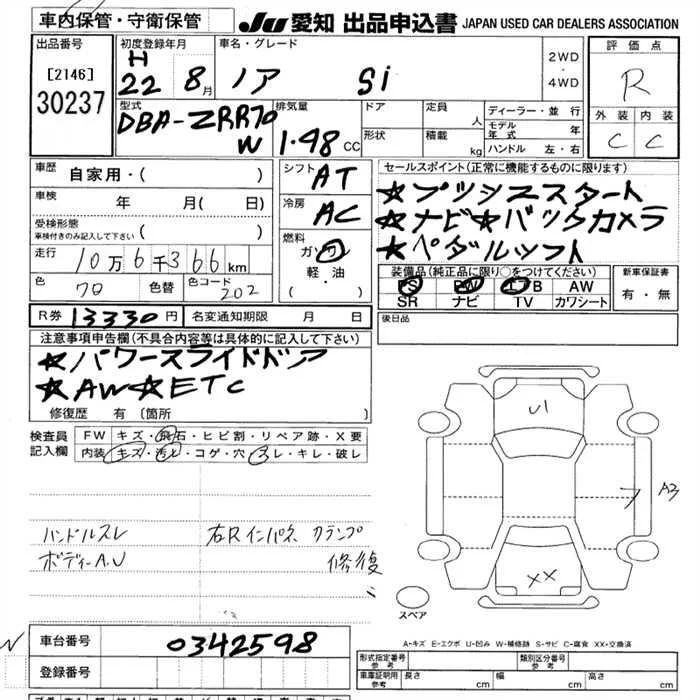 車内保管・守衛保管
JU 愛知 出品申込書 JAPAN USED CAR DEALERS ASSOCIATION
出品番号
[2146]
30237
初度登録年月
H
22 8月
車名・グレード
ノア Si
2WD
・
4WD
評価点
R
外装 内装
C C
型式
DBA-ZRR70
W
排気量
1.98 CC
ドア
定員 人
形状
積載 kg
ディーラー・並行
モデル年式 年
ハンドル 左・右
車歴
自家用・( )
車検 年 月( 日)
受検形態
車検付きのみ記入して下さい ( )
走行 10万6千366km
色 70 色替 色コード 202
シフト AT
冷房 AC
燃料
ガソリン
軽・油
・( )
セールスポイント(正常に機能するものに限ります)
★プッシュスタート
★ナビ★バックカメラ
★ペダルシフト
装備品(純正品に限り○をつけてください)
PS PW エアB AW
SR ナビ TV カワシート
新車保証書
有・無
R券 13330円 名変通知期限 月 日
後日品
注意事項申告欄(不具合内容等は具体的に記入して下さい)
★パワースライドドア
★AW★ETC
修復歴 有(箇所 )
検査員
記入欄
FW キズ・飛石・ヒビ割・リペア跡・X要
内装 キズ・汚れ・コゲ・穴・スレ・キレ・破レ
ハンドルスレ 右Rインパネ クランプ
ボディーA.U 修復
U1
A3
XX
スペア
A-キズ E-エクボ U-凹み W-補修跡 S-サビ C-腐食 XX-交換済
車台番号 0342598
登録番号
形式指定番号
参考
類別区分番号
参考
車庫証明用
参考
長さ cm 幅 cm 高さ cm